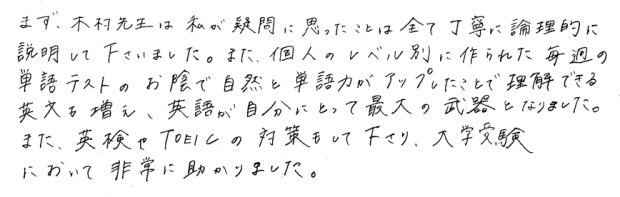 まず、木村先生は私が疑問に思ったことは全て丁寧に論理的に
説明して下さいました。また、個人のレベル別に作られた毎週の
単語テストのお陰で自然と単語力がアップしたことで理解できる
英文も増え、英語が自分にとって最大の武器となりました。
また、英検やTOEICの対策もして下さり、大学受験
において非常に助かりました。